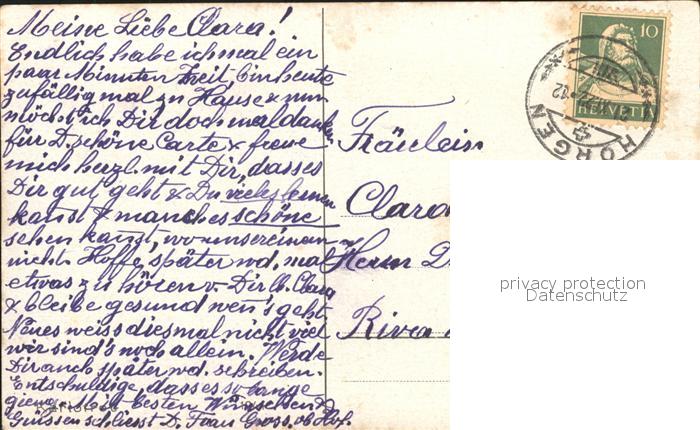 Meine Liebe Clara!
Endlich habe ich mal ein
paar Minuten Zeit, bin heute
zufällig mal zu Hause & nun
möcht ich Dir doch mal danken
für D. schöne Carte & freue
mich herzl. mit Dir, dass es
Dir gut geht & Du vieles lernen
kanst & manches schöne
sehen kanst, wo unsereinem
nicht. Hoffe, später wd. mal
etwas zu hören v. Dir lb. Clara
& bleibe gesund wen's geht
Neues weiss diesmal nicht viel
wir sind's noch allein. Werde
Dir auch später wd. schreiben.
Entschuldige, dass es so lange
gieng. Mit besten Wünschen &
Grüssen schliesst D. Frau Gross, ob Hof.
Fräulein
Clara
Herrn D
Riva
10
HELVETIA
HORGEN
privacy protection
Datenschutz